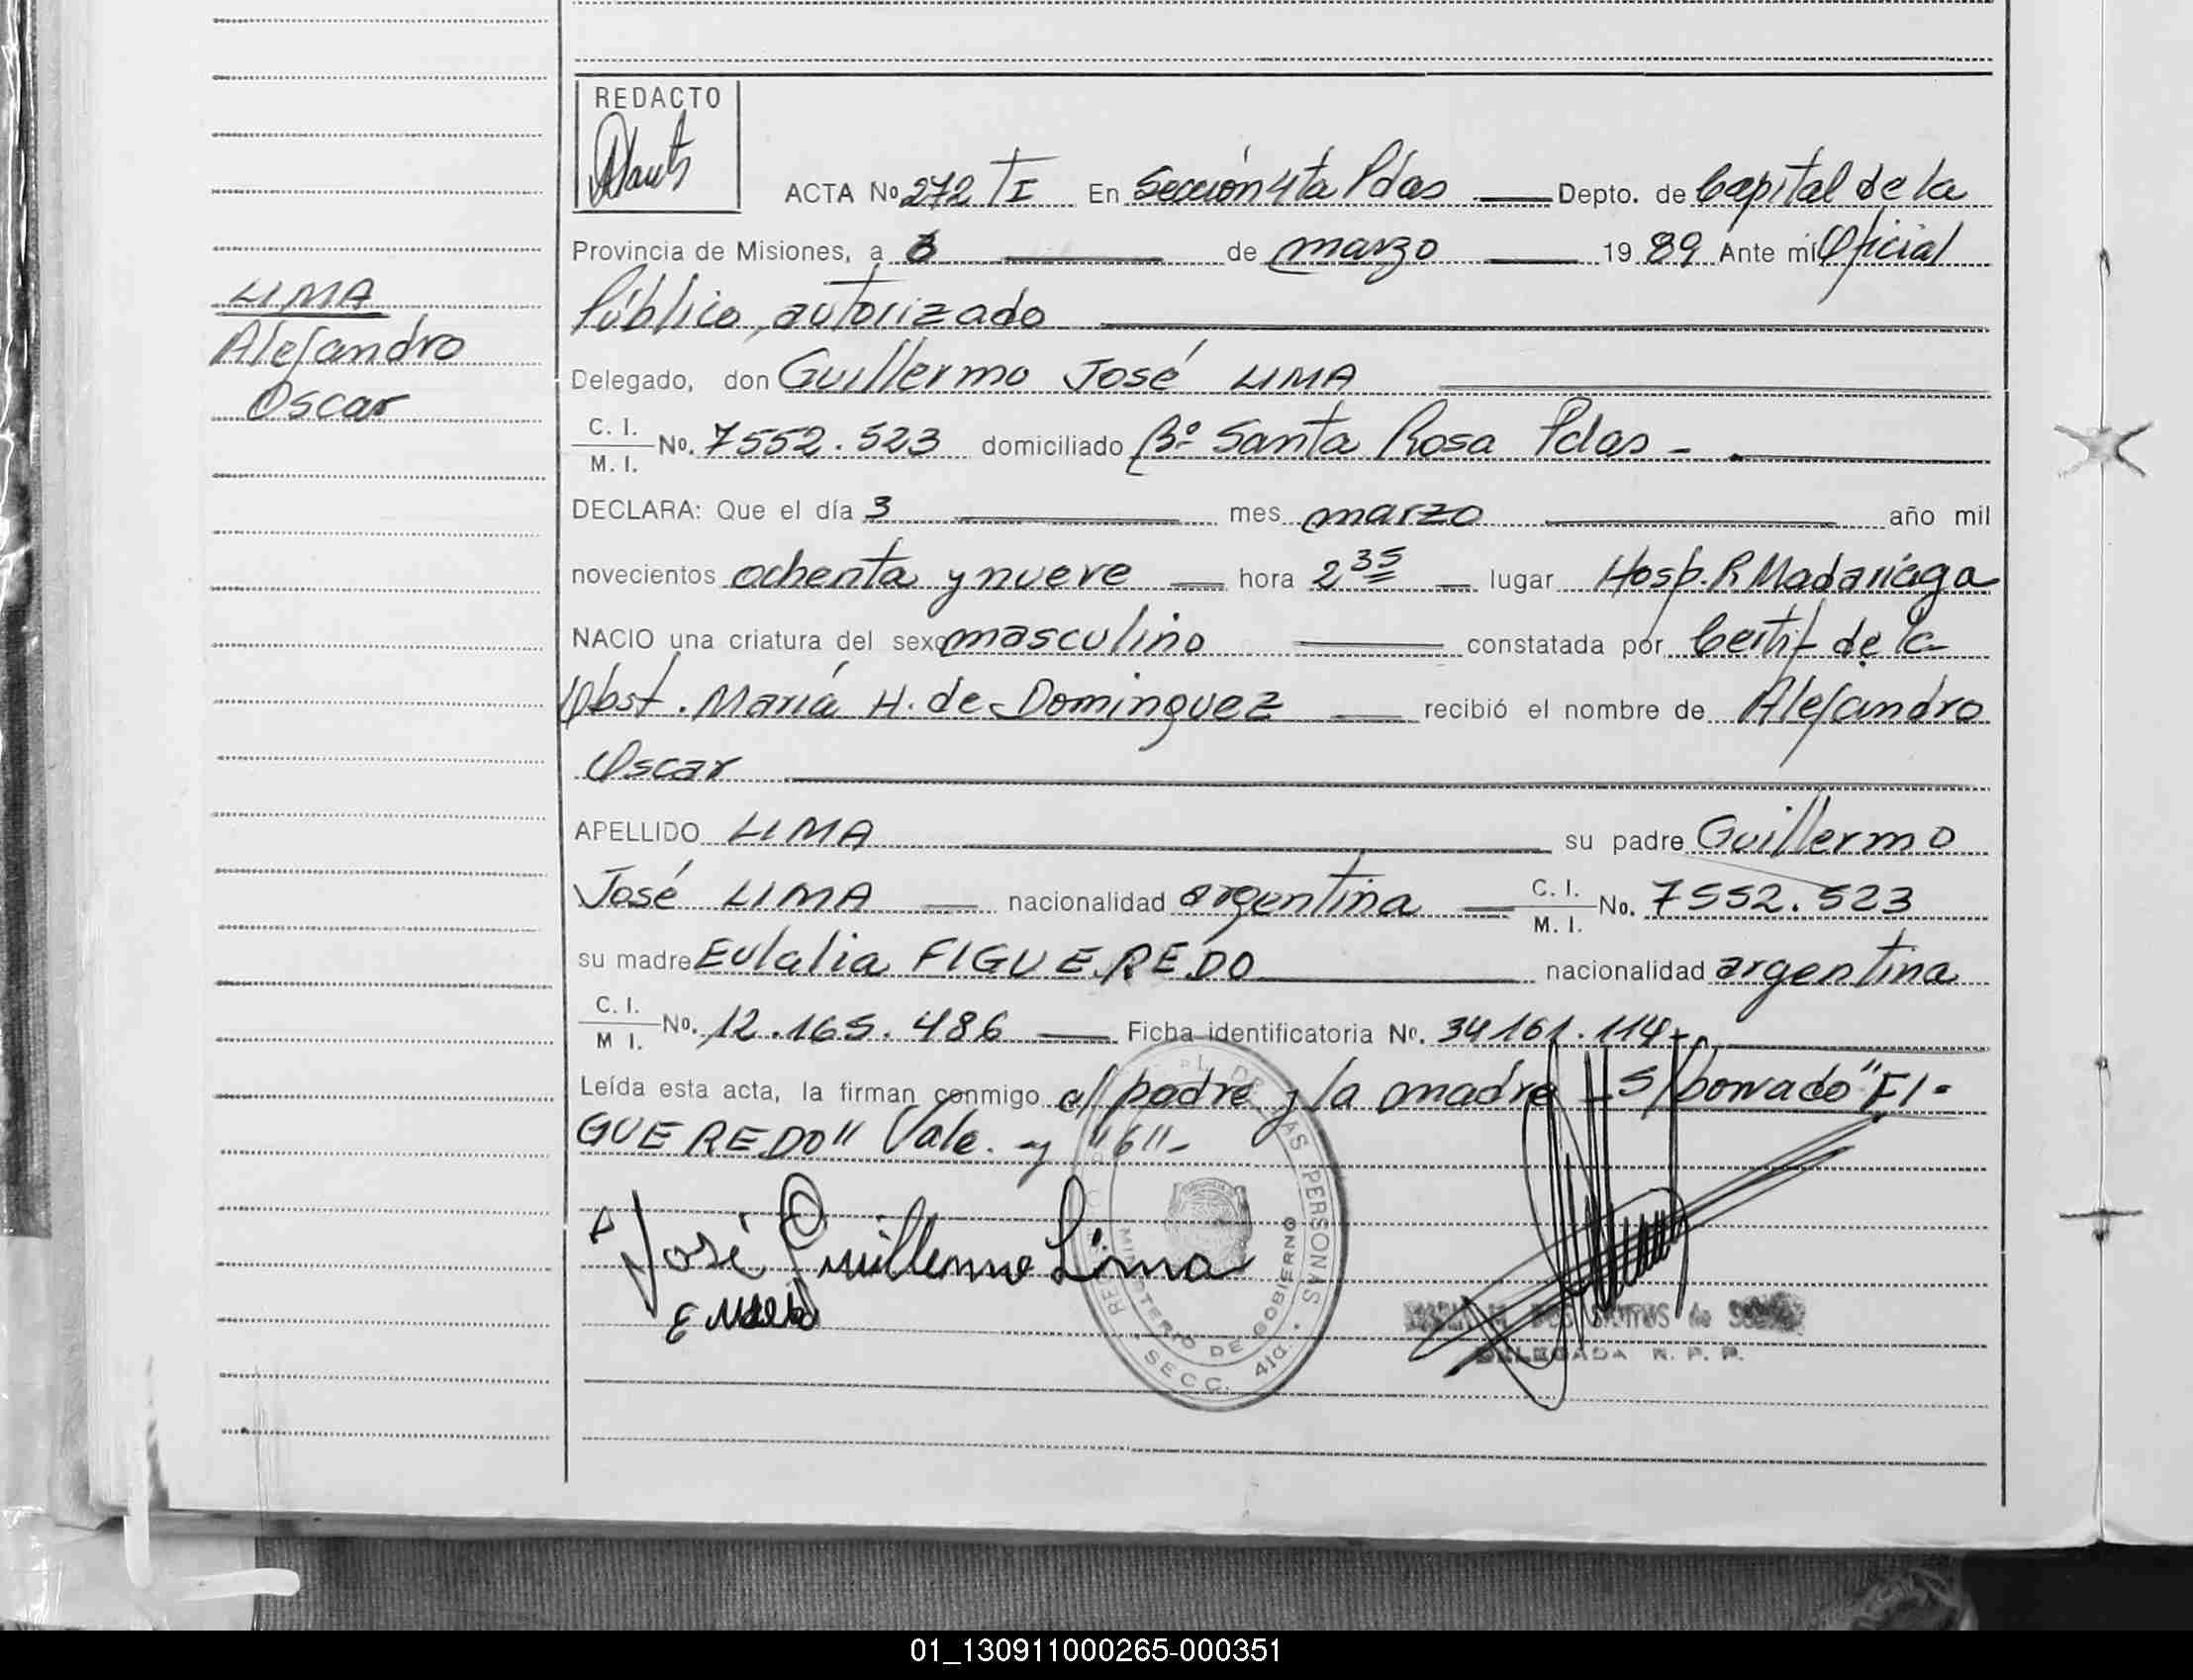 REDACTO
ACTA Nº 272 TI En Sección 4ta Pdas Depto. de Capital de la
Provincia de Misiones, a 6 de marzo 1989 Ante mí Oficial
Público autorizado
LIMA
Alejandro
Oscar
Delegado, don Guillermo José LIMA
C. I.
M. I. No. 7552.523 domiciliado Bº Santa Rosa Pdas -
DECLARA: Que el día 3 mes marzo año mil
novecientos ochenta y nueve hora 2 35 lugar Hosp. R Madariaga
NACIO una criatura del sexo masculino constatada por Certif de la
Obst. María H. de Dominguez recibió el nombre de Alejandro
Oscar
APELLIDO LIMA su padre Guillermo
José LIMA nacionalidad argentina C. I. M. I. No. 7552.523
su madre Eulalia FIGUEREDO nacionalidad argentina
C. I.
M I. No. 12.165.486 Ficha identificatoria Nº. 34161.114-
Leída esta acta, la firman conmigo el padre y la madre - S/borrado "FI-
GUEREDO" Vale. y "6"-
José Guillermo Lima
MINISTERIO DE GOBIERNO
SECC. 4ta.
DOS SANTOS de
DELEGADA R. P. P.
01_130911000265-000351